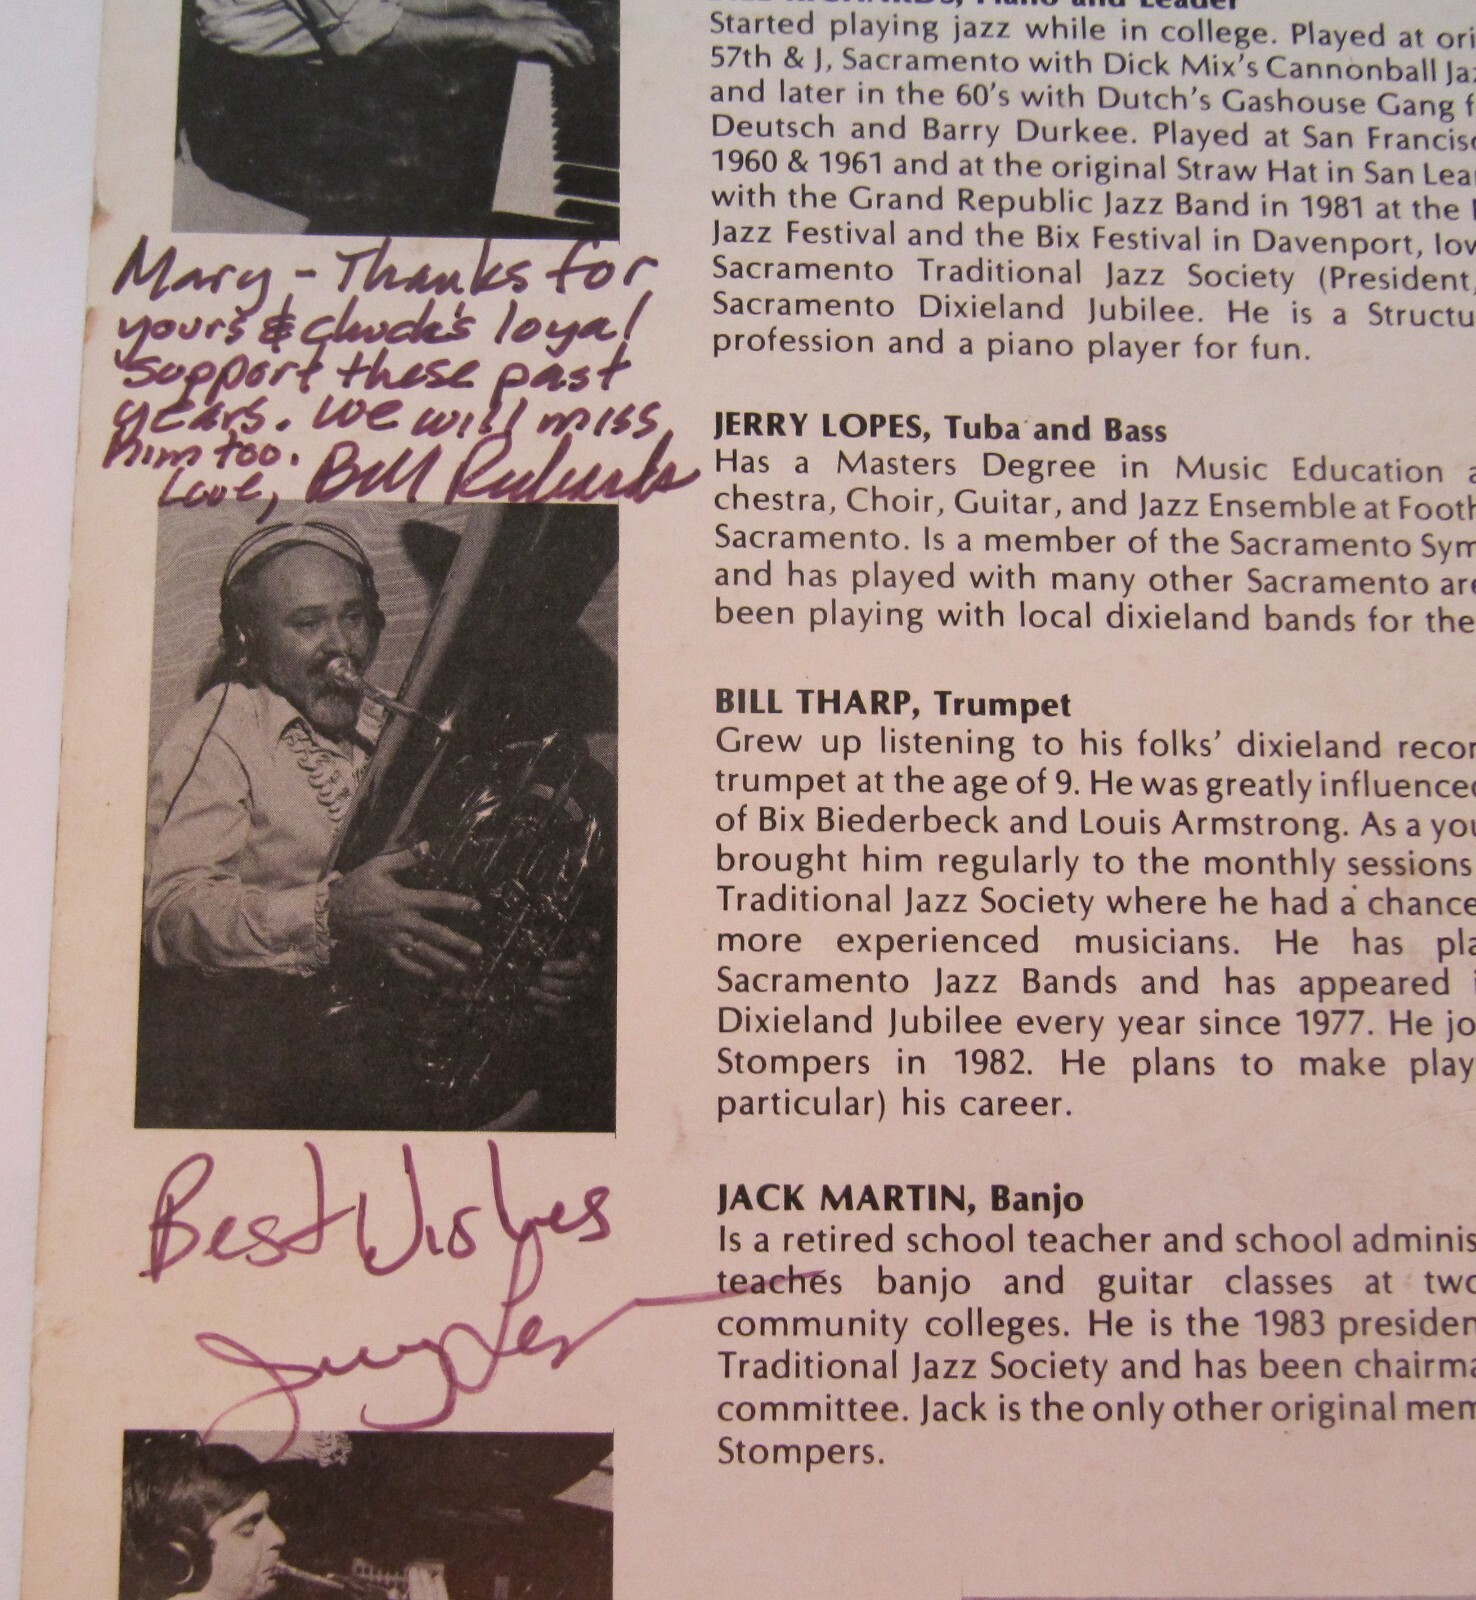 Mary - Thanks for
yours & Chuck's loyal
support these past
years. We will miss
him too.
Love, Bill Richards
Best Wishes
Jerry Lopes
BILL RICHARDS, Piano and Leader
Started playing jazz while in college. Played at ori
57th & J, Sacramento with Dick Mix's Cannonball Ja
and later in the 60's with Dutch's Gashouse Gang f
Deutsch and Barry Durkee. Played at San Francisc
1960 & 1961 and at the original Straw Hat in San Lea
with the Grand Republic Jazz Band in 1981 at the
Jazz Festival and the Bix Festival in Davenport, Iow
Sacramento Traditional Jazz Society (President,
Sacramento Dixieland Jubilee. He is a Structu
profession and a piano player for fun.
JERRY LOPES, Tuba and Bass
Has a Masters Degree in Music Education a
chestra, Choir, Guitar, and Jazz Ensemble at Footh
Sacramento. Is a member of the Sacramento Sym
and has played with many other Sacramento are
been playing with local dixieland bands for the
BILL THARP, Trumpet
Grew up listening to his folks' dixieland recor
trumpet at the age of 9. He was greatly influenced
of Bix Biederbeck and Louis Armstrong. As a you
brought him regularly to the monthly sessions
Traditional Jazz Society where he had a chance
more experienced musicians. He has pla
Sacramento Jazz Bands and has appeared i
Dixieland Jubilee every year since 1977. He jo
Stompers in 1982. He plans to make play
particular) his career.
JACK MARTIN, Banjo
Is a retired school teacher and school adminis
teaches banjo and guitar classes at two
community colleges. He is the 1983 presiden
Traditional Jazz Society and has been chairma
committee. Jack is the only other original mem
Stompers.